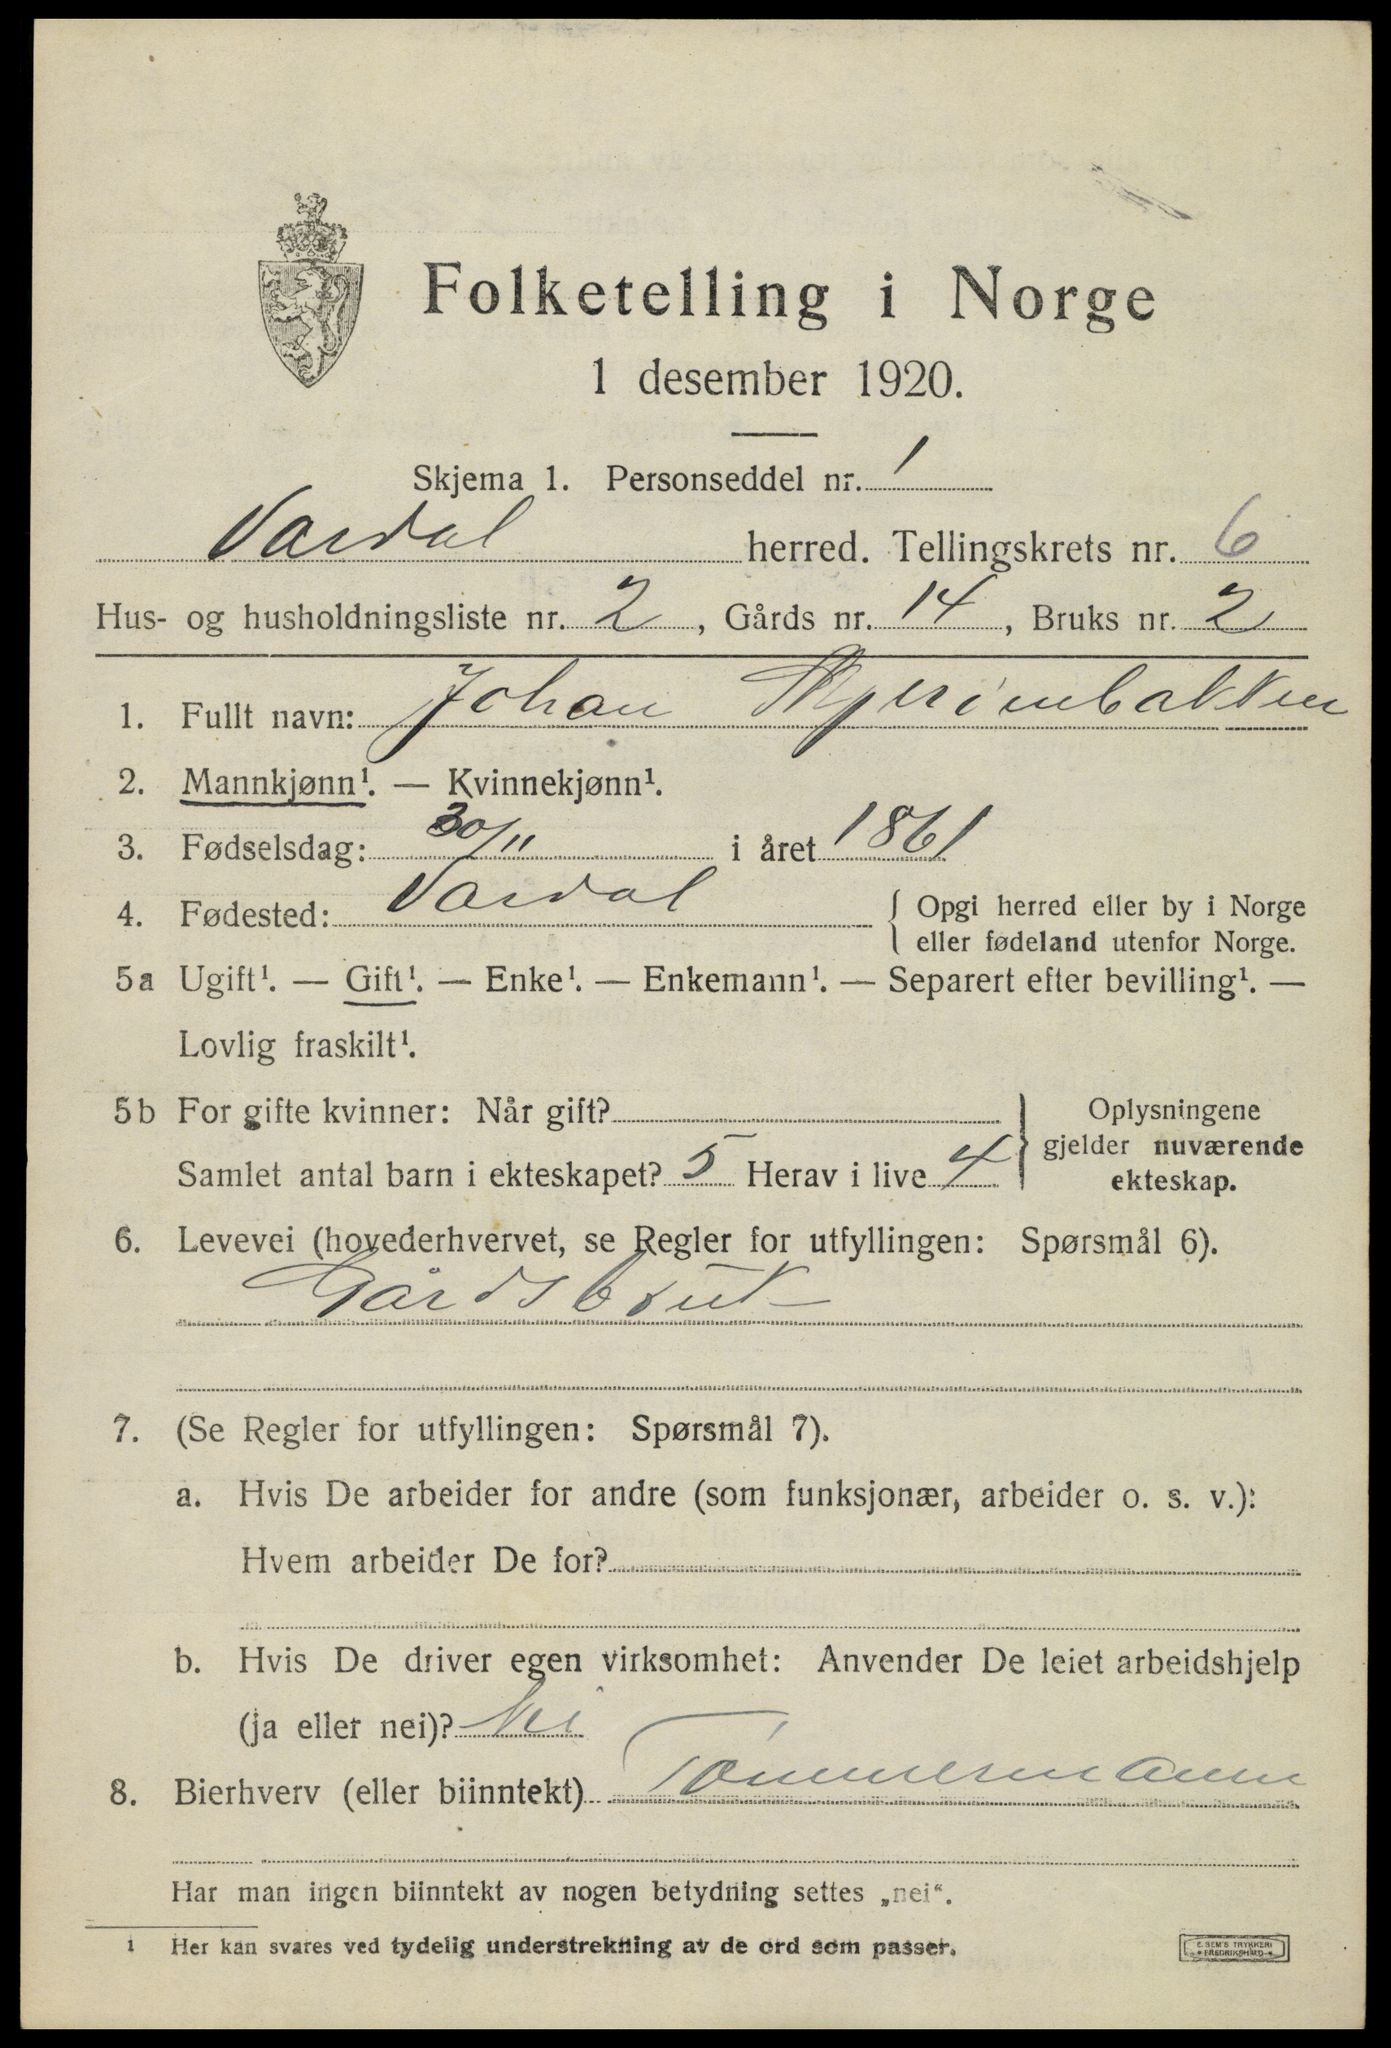 Folketelling i Norge
1 desember 1920.
Skjema 1. Personseddel nr. 1
Vardal herred. Tellingskrets nr. 6
Hus- og husholdningsliste nr. 2, Gårds nr. 14, Bruks nr. 2
1. Fullt navn: Johan
2. Mannkjønn¹. — Kvinnekjønn¹.
3. Fødselsdag: 30/11 i året 1861
4. Fødested: Vardal { Opgi herred eller by i Norge
eller fødeland utenfor Norge.
5a Ugift¹. — Gift¹. — Enke¹. — Enkemann¹. — Separert efter bevilling¹. —
Lovlig fraskilt¹.
5b For gifte kvinner: Når gift?
Samlet antal barn i ekteskapet? 5 Herav i live 4
Oplysningene
gjelder nuværende
ekteskap.
6. Levevei (hovederhvervet, se Regler for utfyllingen: Spørsmål 6).
Gårdsbruk
7. (Se Regler for utfyllingen: Spørsmål 7).
a. Hvis De arbeider for andre (som funksjonær, arbeider o. s. v.):
Hvem arbeider De for?
b. Hvis De driver egen virksomhet: Anvender De leiet arbeidshjelp
(ja eller nei)? Nei
8. Bierhverv (eller biinntekt) Tømmermann
Har man ingen biinntekt av nogen betydning settes „nei“.
1 Her kan svares ved tydelig understrekning av de ord som passer.
E. SEM'S TRYKKERI
FREDRIKSHALD